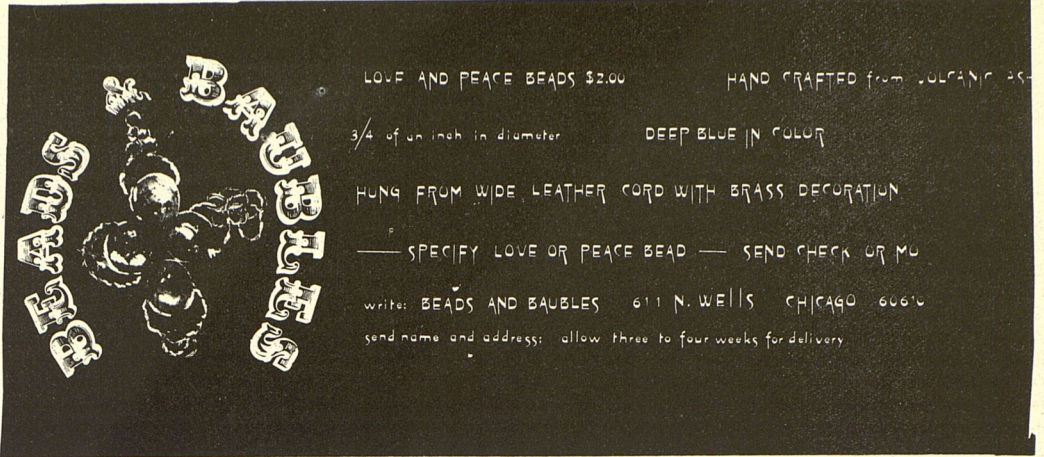 BEADS BAUBLES
LOVE AND PEACE BEADS $2.00 HAND CRAFTED from VOLCANIC AS-
3/4 of an inch in diameter DEEP BLUE IN COLOR
HUNG FROM WIDE LEATHER CORD WITH BRASS DECORATION
— SPECIFY LOVE OR PEACE BEAD — SEND CHECK OR MO
write: BEADS AND BAUBLES 611 N. WEllS CHICAGO 60610
send name and address: allow three to four weeks for delivery